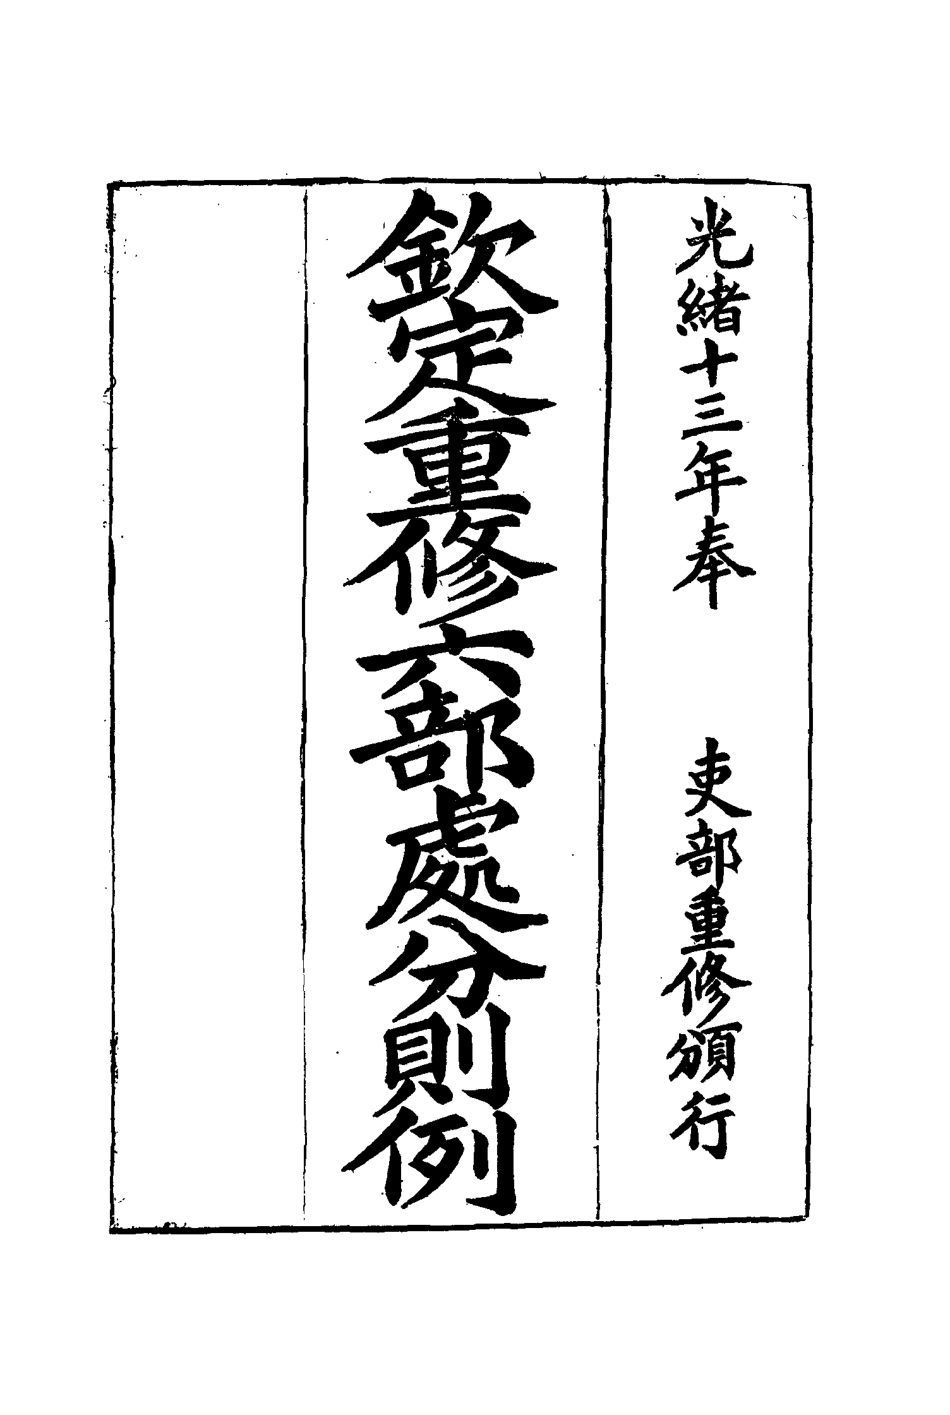 光緒十三年奉　　吏部重修頒行
欽定重修六部處分則例